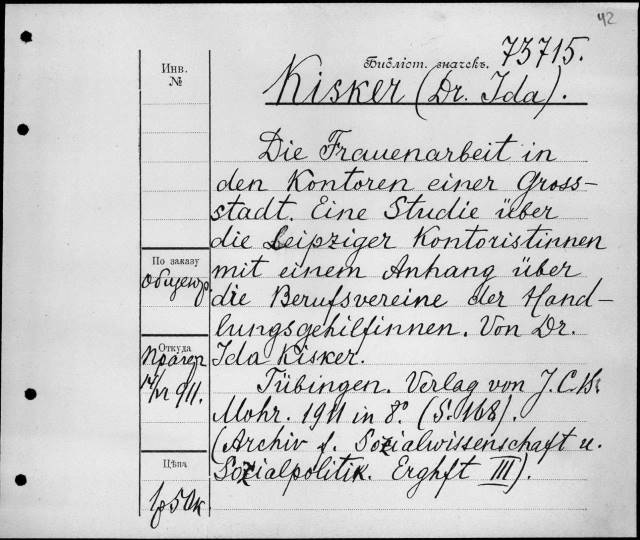 42
Библіот. значекъ. 73715.
Инв.
№
Kisker (Dr. Ida).
Die Frauenarbeit in
den Kontoren einer Gross-
stadt. Eine Studie über
die Leipziger Kontoristinnen
mit einem Anhang über
die Berufsvereine der Hand-
lungsgehilfinnen. Von Dr.
Ida Kisker.
Tübingen. Verlag von J. C. B.
Mohr. 1911 in 8° (S. 168).
(Archiv f. Sozialwissenschaft u.
Sozialpolitik. Erghft III).
По заказу
Откуда
911.
Цѣна
1р 50к